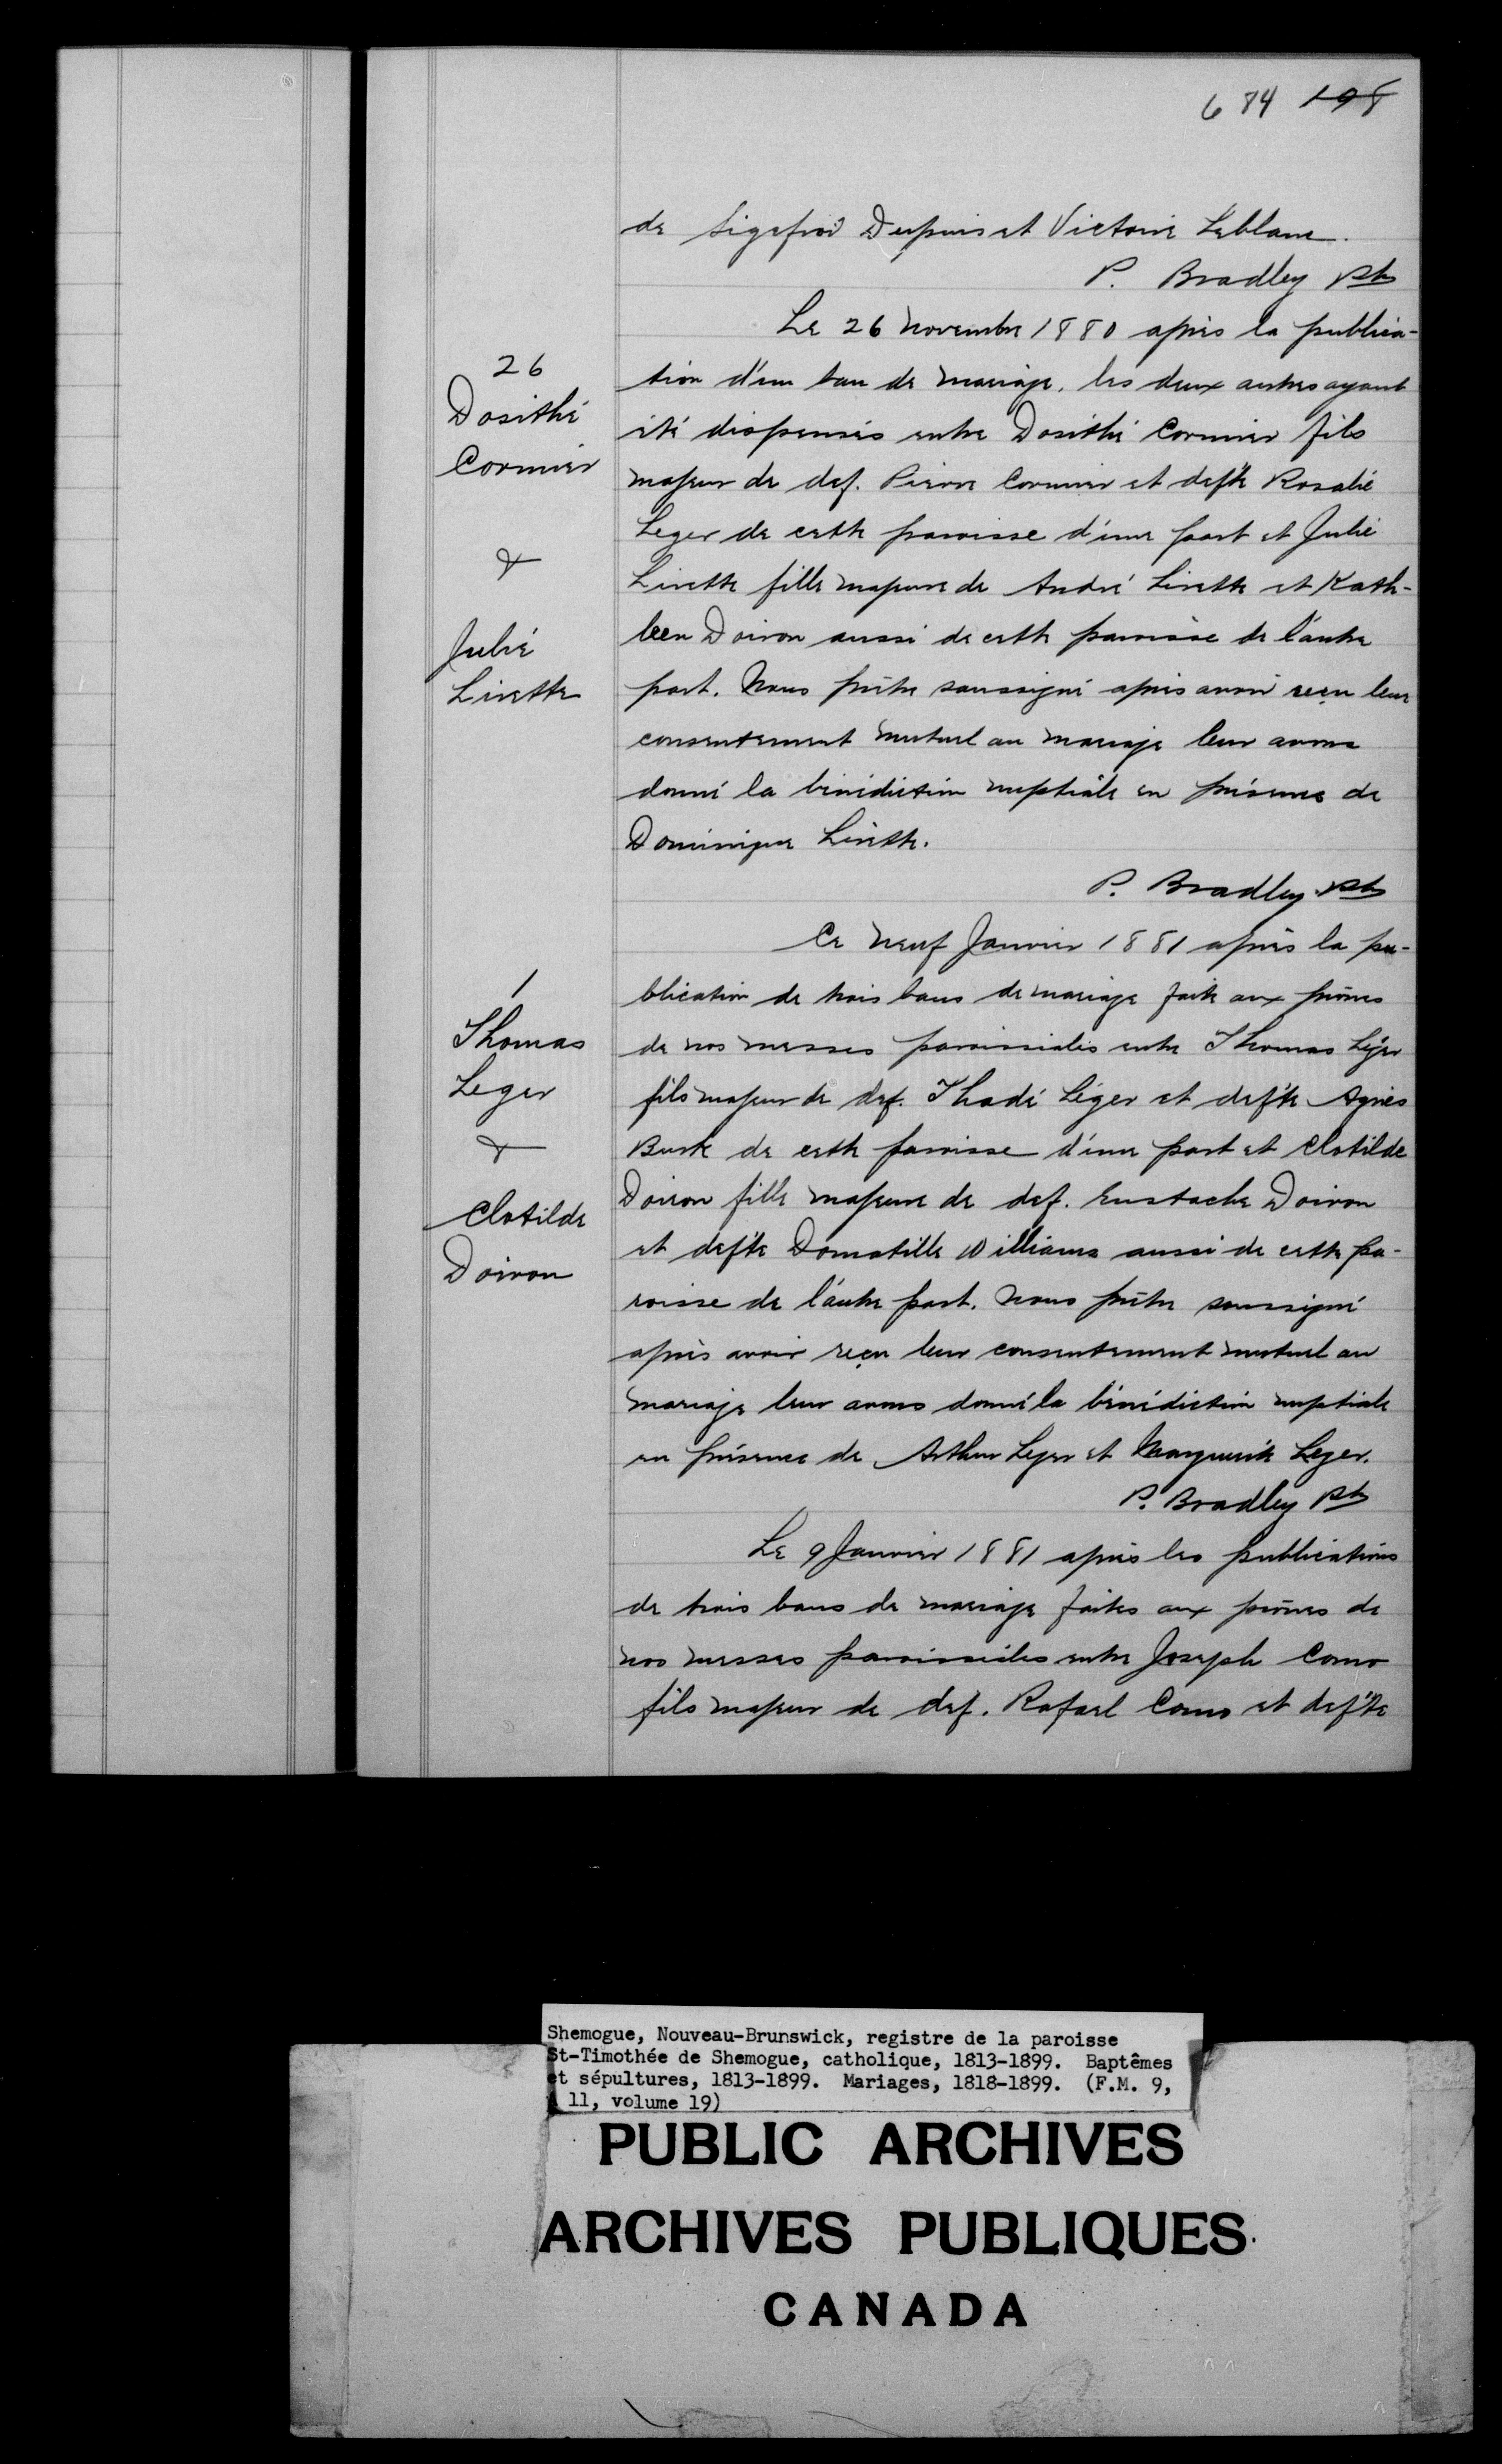 684 198
de Sigefroi Dupuis et Victoire Leblanc.
P. Bradley Ptr
26
Dosithé
Cormier
&
Julie
Lirette
Le 26 Novembre 1880 après la publica-
tion d'un ban de mariage, les deux autres ayant
été dispensés entre Dosithé Cormier fils
majeur de def. Pierre Cormier et def'te Rosalie
Leger de cette paroisse d'une part et Julie
Lirette fille majeure de André Lirette et Kath-
leen Doiron aussi de cette paroisse de l'autre
part. Nous prêtre soussigné après avoir reçu leur
consentement mutuel au mariage leur avons
donné la bénédiction nuptiale en présence de
Dominique Lirette.
P. Bradley Ptr
1
Thomas
Leger
&
Clotilde
Doiron
Ce neuf Janvier 1881 après la pu-
blication de trois bans de mariage faite aux prônes
de nos messes paroissiales entre Thomas Léger
fils majeur de def. Thadé Léger et def'te Agnès
Burk de cette paroisse d'une part et Clotilde
Doiron fille majeure de def. Eustache Doiron
et def'te Domatille Williams aussi de cette pa-
roisse de l'autre part. Nous prêtre soussigné
après avoir reçu leur consentement mutuel au
mariage leur avons donné la bénédiction nuptiale
en présence de Arthur Leger et Marguerite Leger.
P. Bradley Ptr
Le 9 Janvier 1881 après les publications
de trois bans de mariage faites aux prônes de
nos messes paroissiales entre Joseph Como
fils majeur de def. Rafael Como et def'te
Shemogue, Nouveau-Brunswick, registre de la paroisse
St-Timothée de Shemogue, catholique, 1813-1899. Baptêmes
et sépultures, 1813-1899. Mariages, 1818-1899. (F.M. 9,
11, volume 19)
PUBLIC ARCHIVES
ARCHIVES PUBLIQUES
CANADA